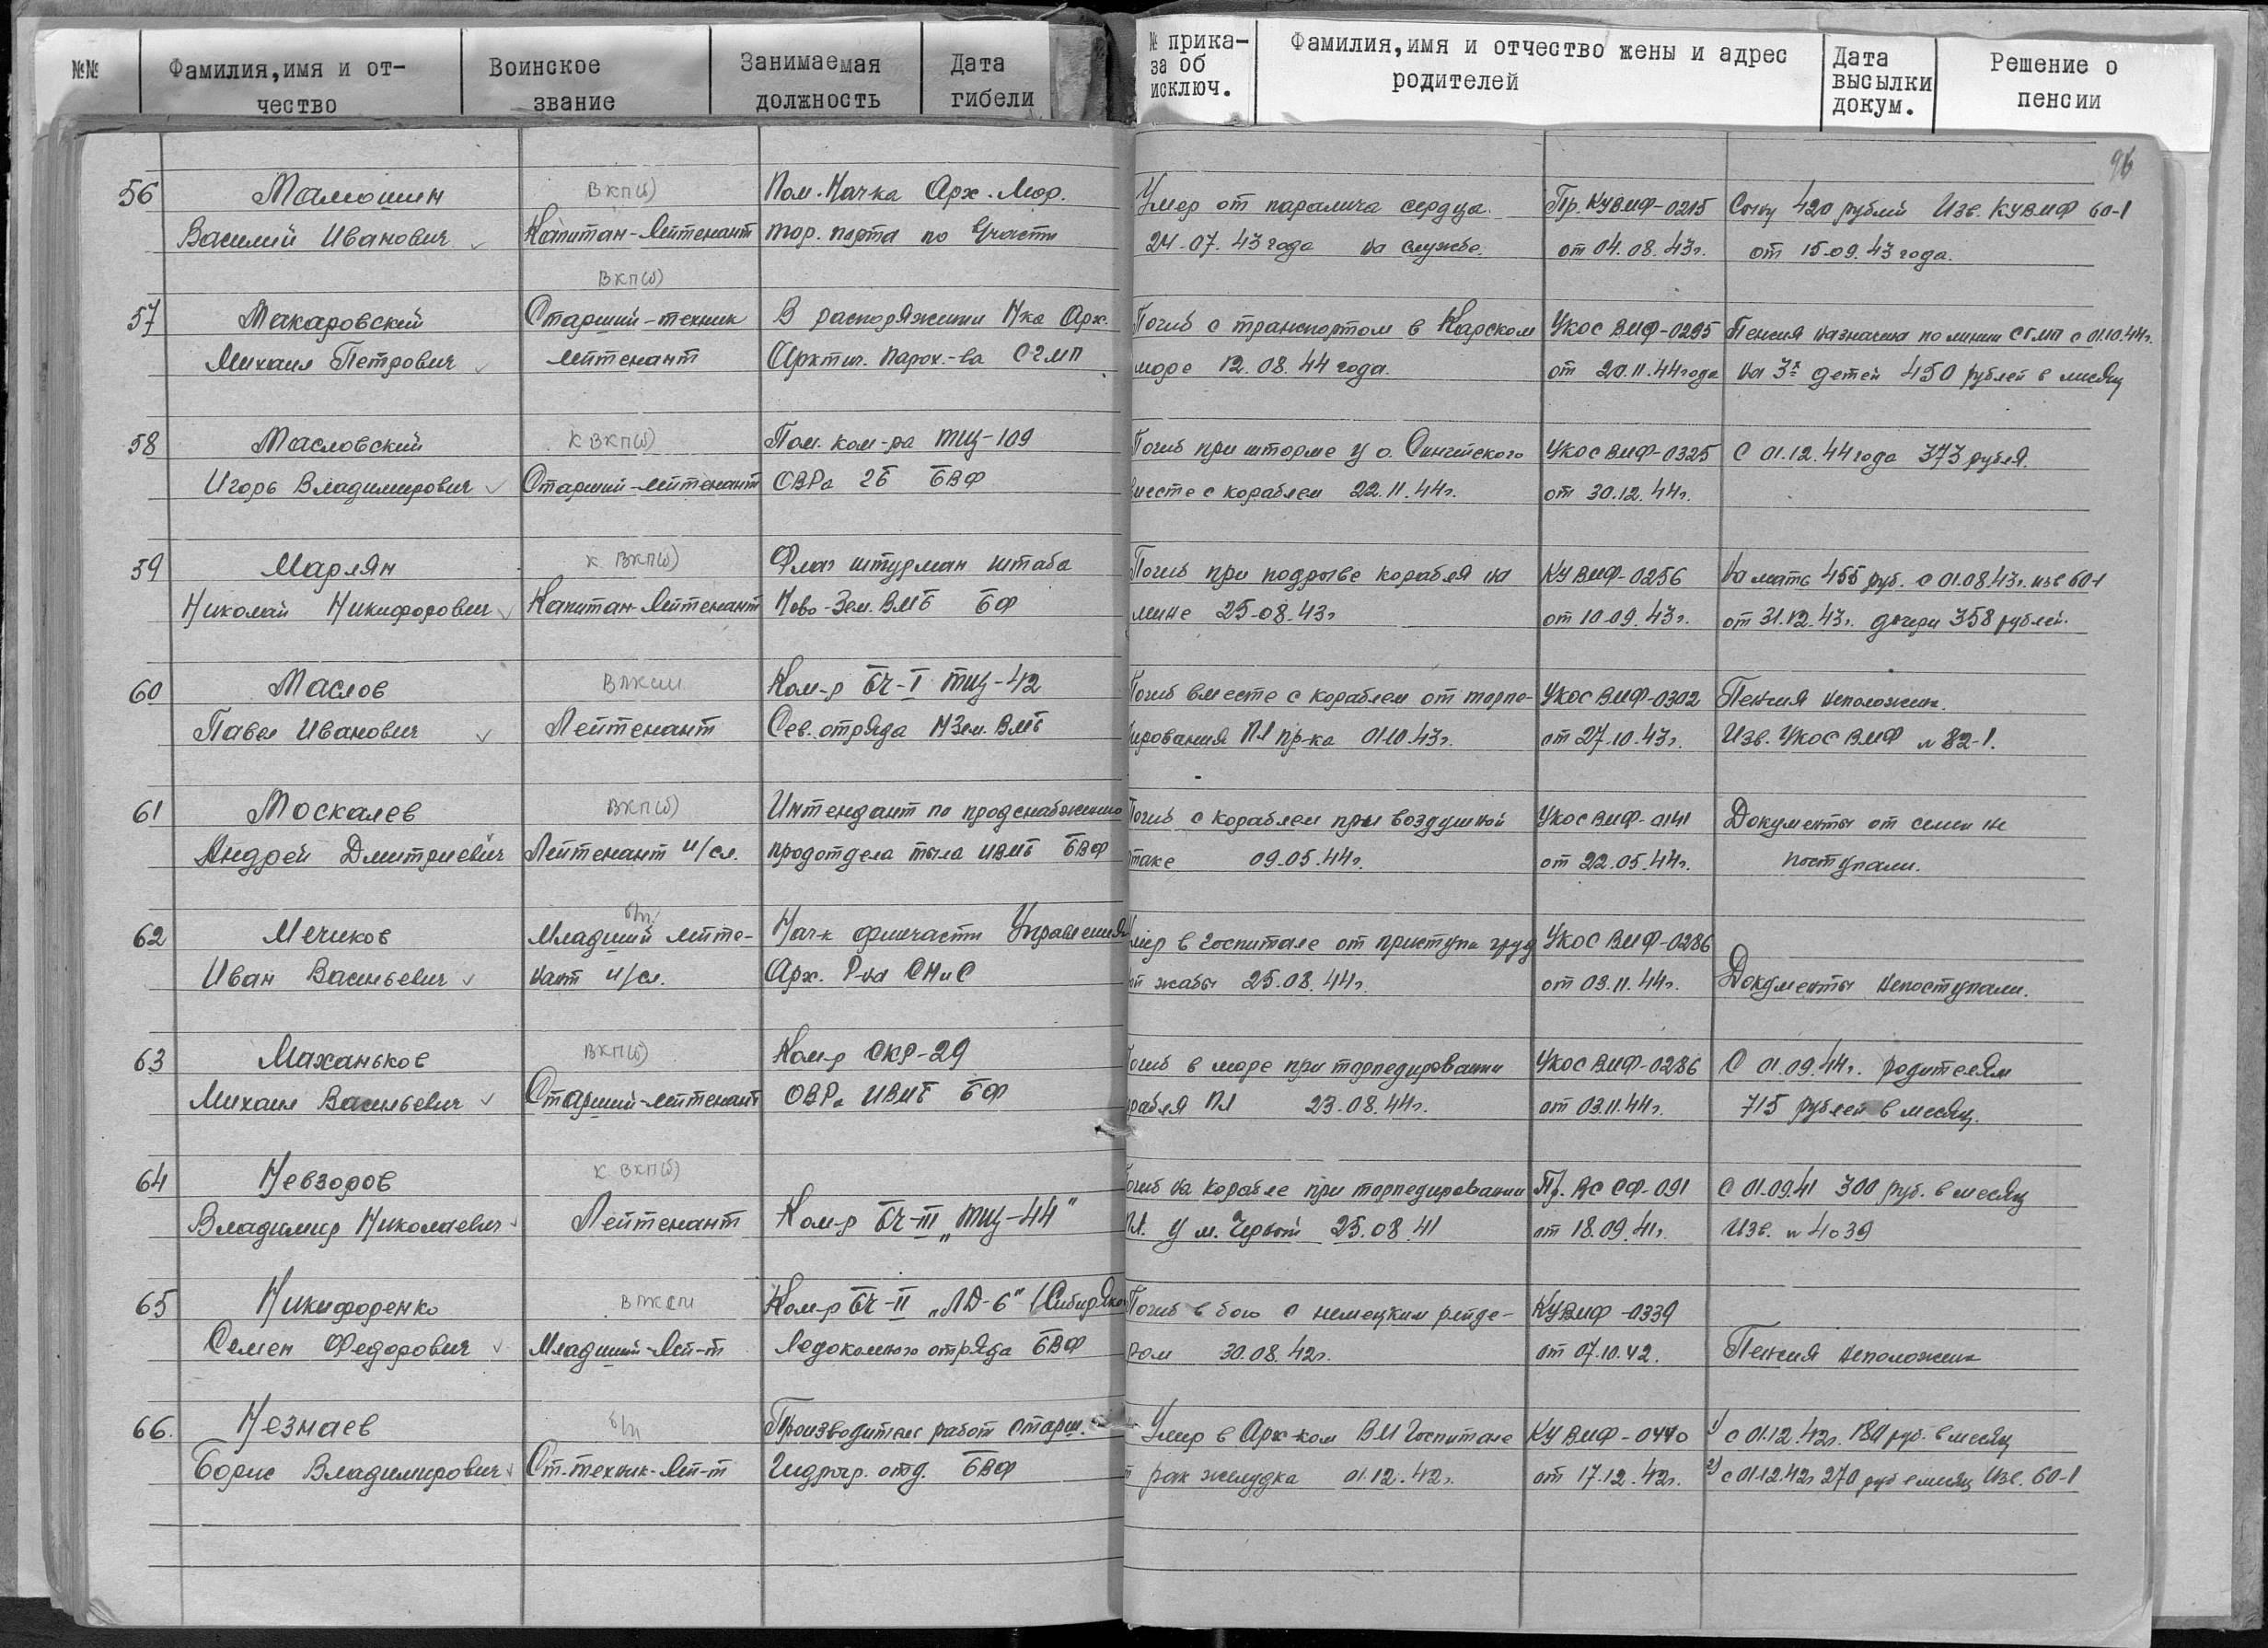 №№
Фамилия, имя и от-
чество
Воинское
звание
Занимаемая
должность
Дата
гибели
№ прика-
за об
исключ.
Фамилия, имя и отчество жены и адрес
родителей
Дата
высылки
докум.
Решение о
пенсии
96
56 Мамошин ВКП(б) Пом. Нач-ка Арх. Мор. Умер от паралича сердца. Пр. КУВМФ-0215 Сыну 420 рублей Изв. КУВМФ 60-1
Василий Иванович Капитан-Лейтенант тор. порта по 24-07.43 года на службе. от 04.08.43г. от 15.09.43 года.
ВКП(б)
57 Макаровский Старший-техник В распоряжении Н-ка Арх. Погиб с транспортом в Карском УКОС ВМФ-0295 Пенсия назначена по линии СГМП с 01.10.44г.
Михаил Петрович лейтенант Арктич. Парох.-ва СГМП море 12.08.44 года. от 20.11.44 года на 3х детей 450 рублей в месяц
58 Масловский К ВКП(б) Пом. ком-ра ТЩ-109 Погиб при шторме у о. УКОС ВМФ-0325 С 01.12.44 года 373 рубля.
Игорь Владимирович Старший-лейтенант ОВРа 2Б БВФ вместе с кораблем 22.11.44г. от 30.12.44г.
59 Марлян К ВКП(б) Флаг штурман штаба Погиб при подрыве корабля на КУ ВМФ-0256 На мать 455 руб. с 01.08.43г. изв 60-1
Николай Никифорович Капитан-Лейтенант Ново-Зем. ВМБ БФ мине 25-08.43г от 10.09.43г. от 31.12.43г. дочери 358 рублей.
60 Маслов ВЛКСМ Ком-р БЧ-I ТЩ-42 Погиб вместе с кораблем от торпе- УКОС ВМФ-0302 Пенсия неположена.
Павел Иванович Лейтенант Сев. отряда НЗем. ВМБ дирования ПЛ пр-ка 01.10.43г. от 27.10.43г. Изв. УКОС ВМФ № 82-1.
61 Москалев ВКП(б) Интендант по продснабжению Погиб с кораблем при воздушной УКОС ВМФ-0141 Документы от семьи не
Андрей Дмитриевич Лейтенант и/сл. продотдела тыла ИВМБ БВФ атаке 09.05.44г. от 22.05.44г. поступали.
б/п.
62 Мечиков Младший лейте- Нач-к финчасти Управления Умер в госпитале от приступа груд УКОС ВМФ-0286
Иван Васильевич нант и/сл. Арх. Р-на СНиС ной жабы 25.08.44г. от 03.11.44г. Документы непоступали.
63 Маханьков ВКП(б) Ком-р СКР-29 Погиб в море при торпедировании УКОС ВМФ-0286 С 01.09.44г. родителям
Михаил Васильевич Старший-лейтенант ОВРа ИВМБ БФ корабля ПЛ 23.08.44г. от 03.11.44г. 715 рублей в месяц.
64 Невзоров К ВКП(б) Погиб на корабле при торпедировании Пр. ВС СФ-091 С 01.09.41 300 руб. в месяц
Владимир Николаевич Лейтенант Ком-р БЧ-III „ТЩ-44" ПЛ. у м. Черный 25.08.41 от 18.09.41г. Изв. № 4039
65 Никифоренко ВЛКСМ Ком-р БЧ-II „ЛД-6" (Сибиряков Погиб в бою с немецким рейде- КУВМФ-0339
Семен Федорович Младший-Лей-т Ледокольного отряда БВФ ром 30.08.42г. от 07.10.42. Пенсия неположена
66. Незнаев б/п Производитель работ старш. Умер в Арх-ком ВМ Госпитале КУ ВМФ-0440 1) с 01.12.42г. 180 руб. в месяц
Борис Владимирович Ст.-техник-Лей-т Гидрогр. отд. БВФ рак желудка 01.12.42г. от 17.12.42г. 2) с 01.12.42г 270 руб в месяц Изв. 60-1